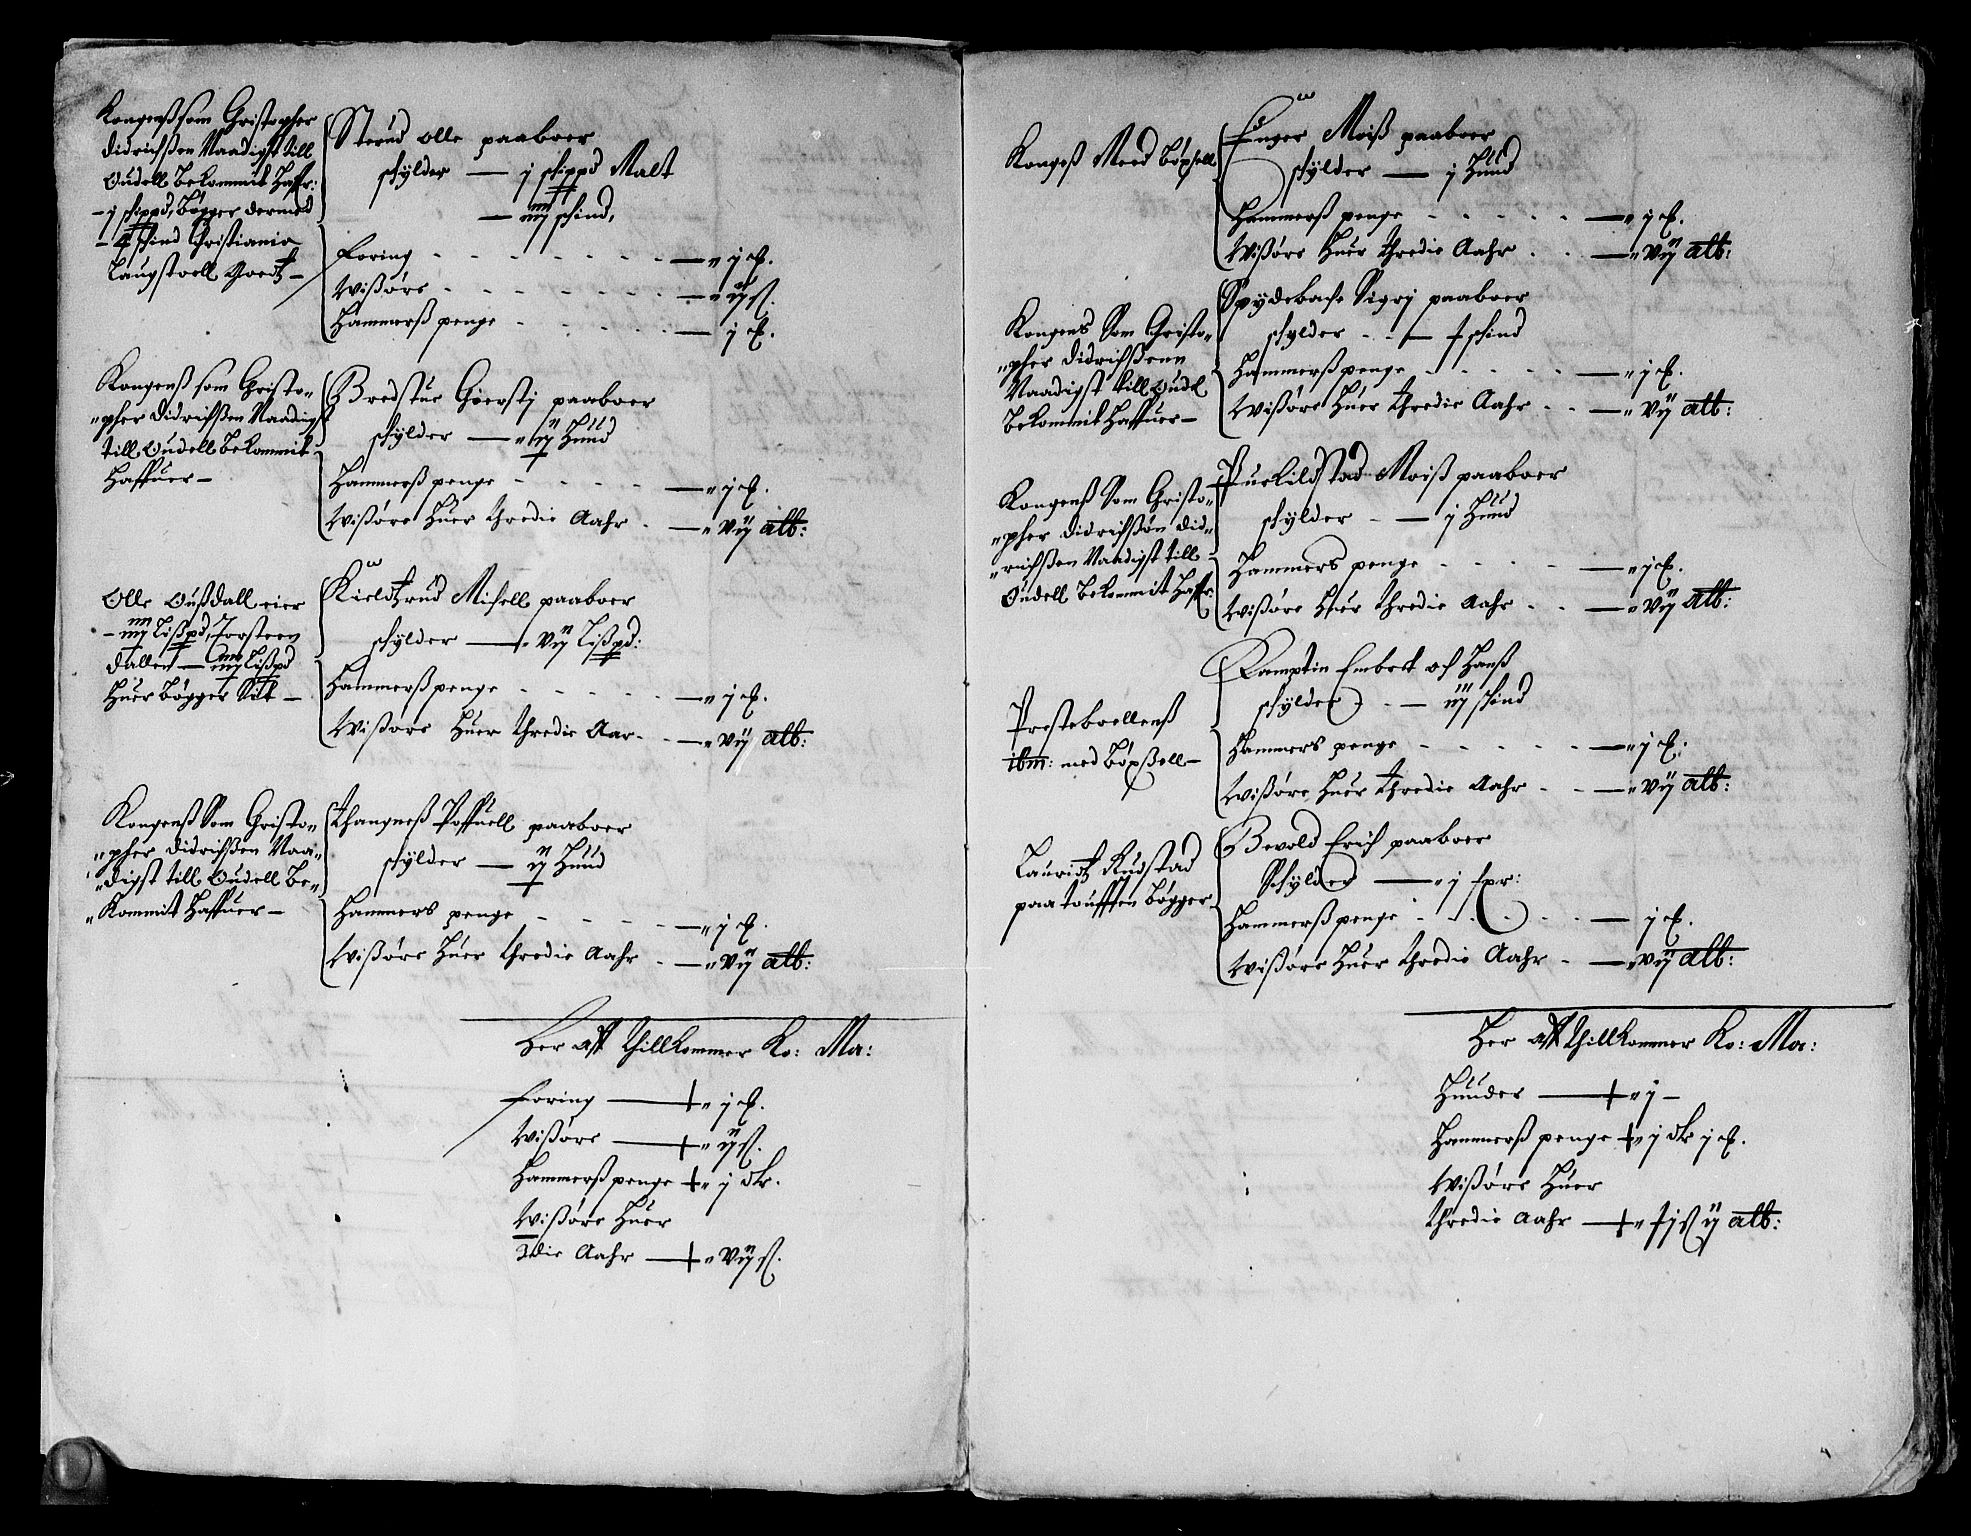 Kongenß som Christopher
Didrichßen Naadigst till
Oudell Bekommit Haffr:
- j schippd, Bøgger dermed
- 4 schind Christiania
Laugstoell Goedtz -
Sterud Olle paaboer
schylder — j schippd Malt
— iiij schind,
Foring — " j ¢.
Wißøre — " ij ß.
Hammerß penge — j ¢.
Kongenß som Christo-
"pher Didrichßen Naadigst
till Oudell Bekommit
Haffuer -
Bredstue Goerstj paaboer
schylder — " ij Hund
Hammerß penge — " j ¢.
Wißøre Huer thredie Aahr — " vij alb:
Olle Oußdall eier
- iiij Lißpd, Torsteen
Dallen — iiij Lißpd
Huer Bøgger Sit -
Kieldtzrud Michell paaboer
schylder — vij Lißpd:
Hammerß penge — " j ¢.
Wißøre Huer thredie Aar — " vij alb:
Kongenß Som Christo-
"pher Didrichßen Naa-
"digst till Oudell Be-
"Kommit Haffuer -
Thangneß Poffuell paaboer
schylder — ij Hund
Hammers penge — " j ¢.
Wißøre Huer thredie Aahr — " vij alb:
Her aff thillkommer Ko: Ma:
Foring — " j ¢.
Wißøre — " ij ß.
Hammerß penge " j dlr.
Wißøre Huer
3die Aahr — " vij ß.
Kongeß Med Bøxsell
Enger Moiß paaboer
schylder — j Hund
Hammerß penge — " j ¢.
Wißøre Huer thredie Aahr — " vij alb:
Kongens Som Christo-
"pher Didrichßenn
Naadigst till Oudel
Bekommit Haffuer -
Spydebache Sigrj paaboer
schylder — schind
Hammerß penge — " j ¢.
Wißøre Huer thredie Aahr — " vij alb:
Kongenß Som Christo-
"pher Didrichßøn Did-
"richßen Naadigst till
Oudell Bekommit Haffr:
Moiß paaboer
schylder — j Hund
Hammers penge — " j ¢.
Wißøre Huer thredie Aahr — " vij alb:
Prestebollenß
ibm: med Bøxßell -
Kamptin Embret och Hanß
schylder — iij schind
Hammers penge — " j ¢.
Wißøre Huer thredie Aahr — " vij alb:
Lauridtz Rudstad
paa Toufften Bøgger
Bevold Erich paaboer
Schylder — " j fpr:
Hammerß penge — j ¢.
Wißøre Huer thredie Aahr — " vij alb:
Her aff thillkommer Ko: Ma:
Hunder — " j -
Hammerß penge " j dlr j ¢.
Wißøre Huer
thredie Aahr — ij alb: